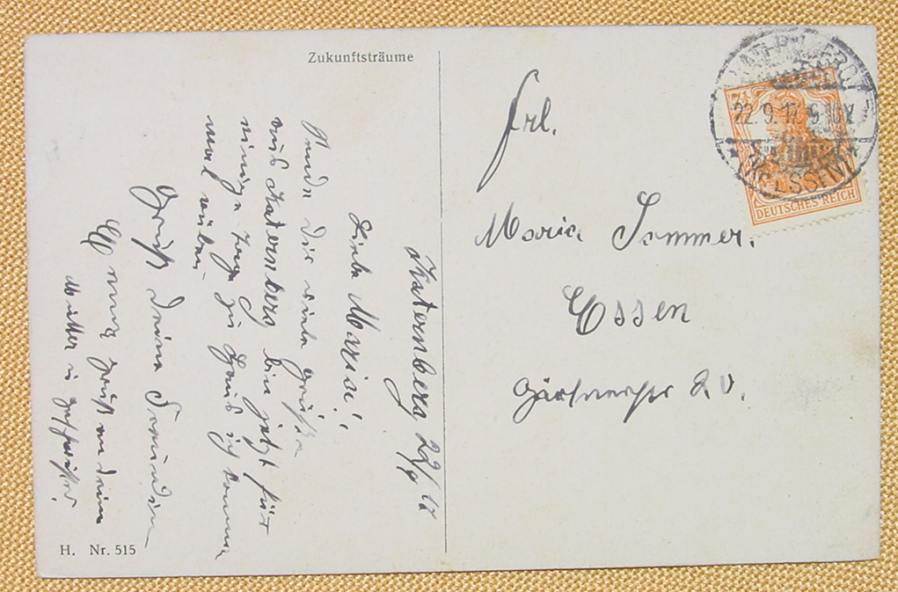 Zukunftsträume
Katernberg 22/9 17
Liebe Maria!
Sende dir viele Grüße
aus Katernberg bin jetzt für
einige Tage zu Haus ich komme
mal rüber
Gruß deine Freundin
Gruß an deine
Mutter u Geschwister.
H. Nr. 515
Frl.
Maria Sommer.
Essen
22.9.17
(KR. ESSEN)
DEUTSCHES REICH